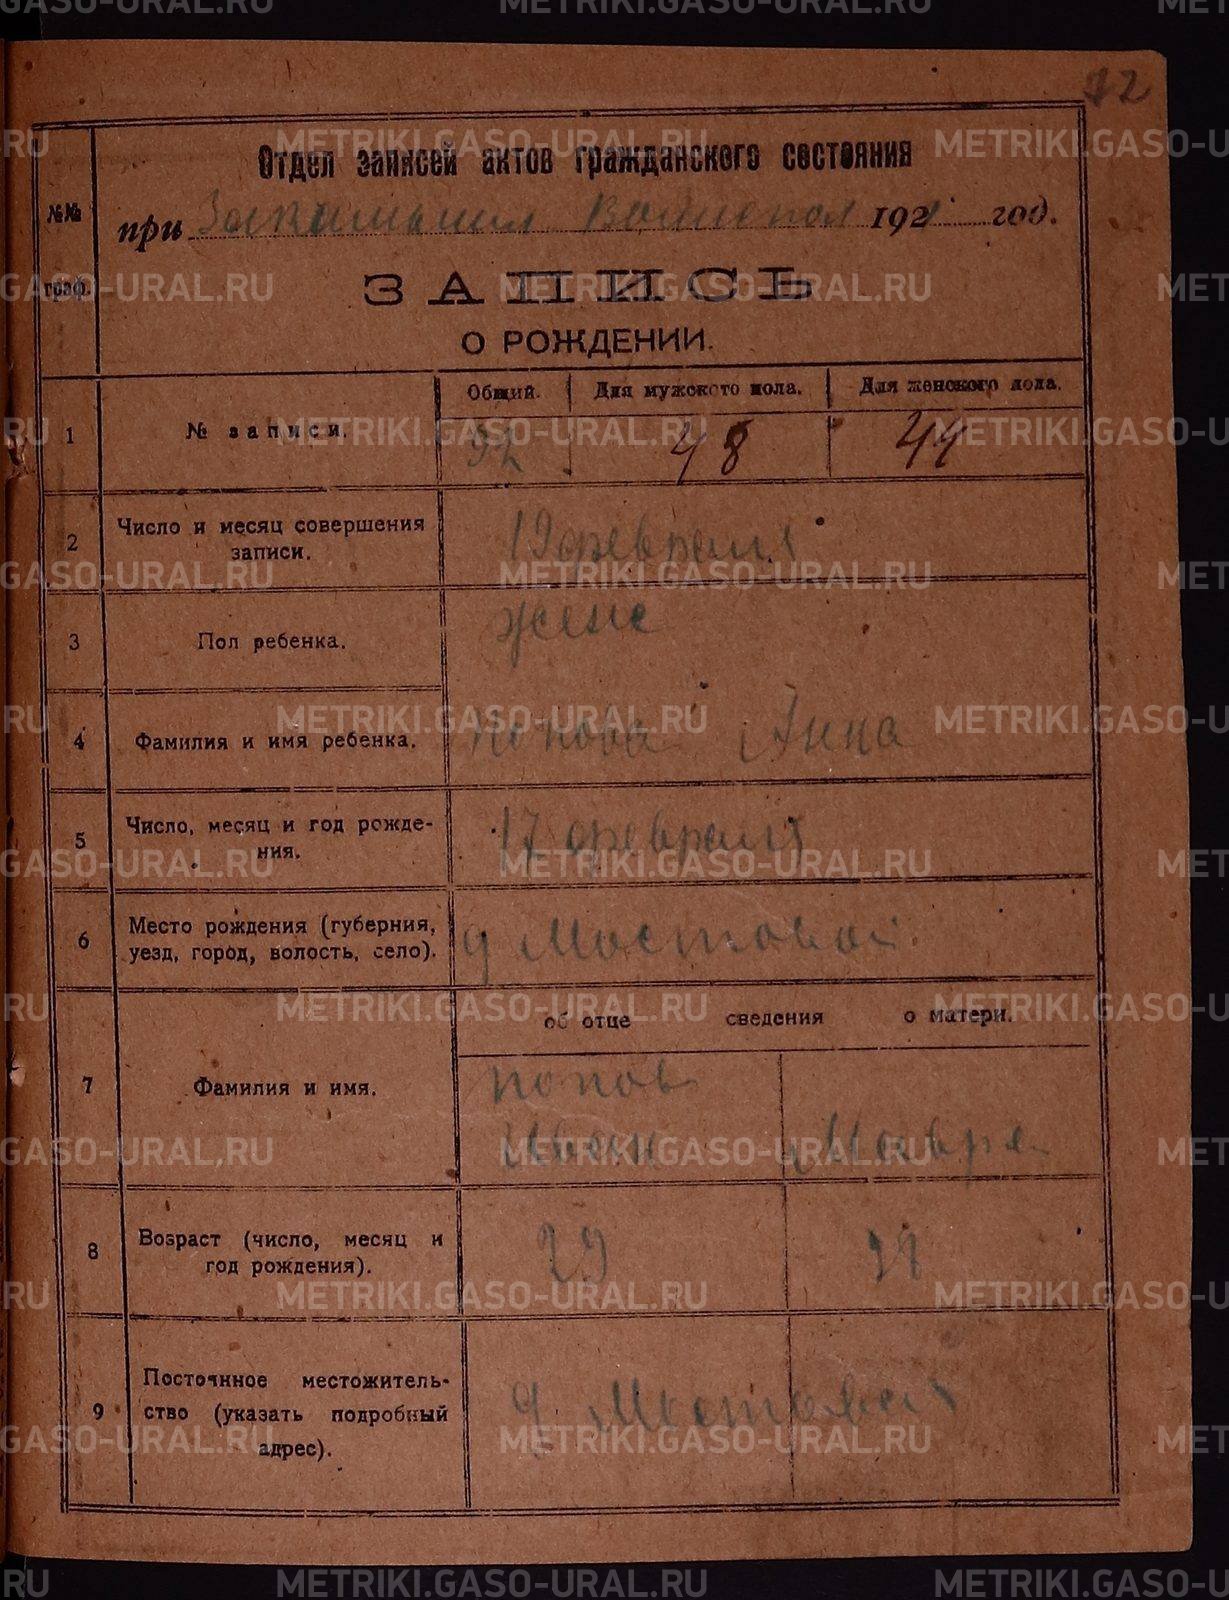 72
Отдел записей актов гражданского состояния
№№ граф.
при Волиспол 1921 год.
ЗАПИСЬ
О РОЖДЕНИИ.
Общий. Для мужского пола. Для женского пола.
1 № записи. 92 48 44
2 Число и месяц совершения
записи.
19 февраля
3 Пол ребенка. женс
4 Фамилия и имя ребенка. Попова Анна
5 Число, месяц и год рожде-
ния.
17 февраля
6 Место рождения (губерния,
уезд, город, волость, село).
д Мостовой
об отце сведения о матери.
7 Фамилия и имя.
Попов
Иван Мавра
8 Возраст (число, месяц и
год рождения).
29 28
9 Постоянное местожитель-
ство (указать подробный
адрес).
д Мостовая
METRIKI.GASO-URAL.RU